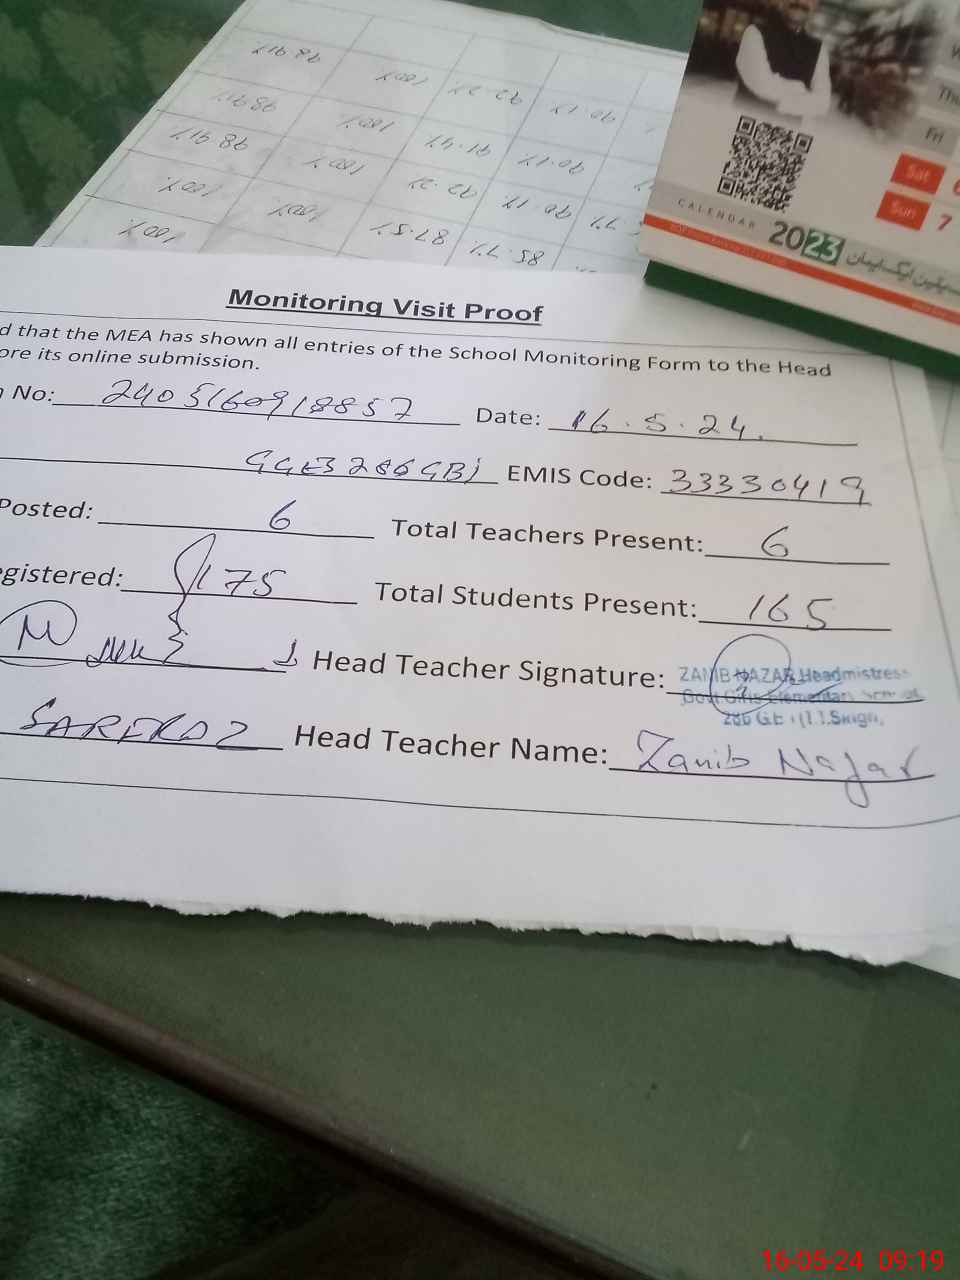 98.91%
100%
92.2%
90.1%
98.91%
100%
91.4%
90.1%
98.91%
100%
92.2%
90.1%
100%
100%
87.5%
85.7%
100%
Th
Fri
Sat 6
Sun 7
CALENDAR
2023
Monitoring Visit Proof
d that the MEA has shown all entries of the School Monitoring Form to the Head
ore its online submission.
No: 2405160918857 Date: 16.5.24.
GGES 286 GB EMIS Code: 33330419
Posted: 6 Total Teachers Present: 6
gistered: 175 Total Students Present: 165
Head Teacher Signature:
ZANIB NAZAR Headmistress
Govt. Girls Elementary School
286 G.B
SARFRAZ Head Teacher Name: Zanib Nazar
16-05-24 09:19